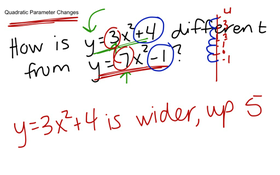 Quadratic Parameter Changes
How is y=3x²+4 different
from y=7x²-1?
4
3
2
1
0
-1
y=3x²+4 is wider, up 5